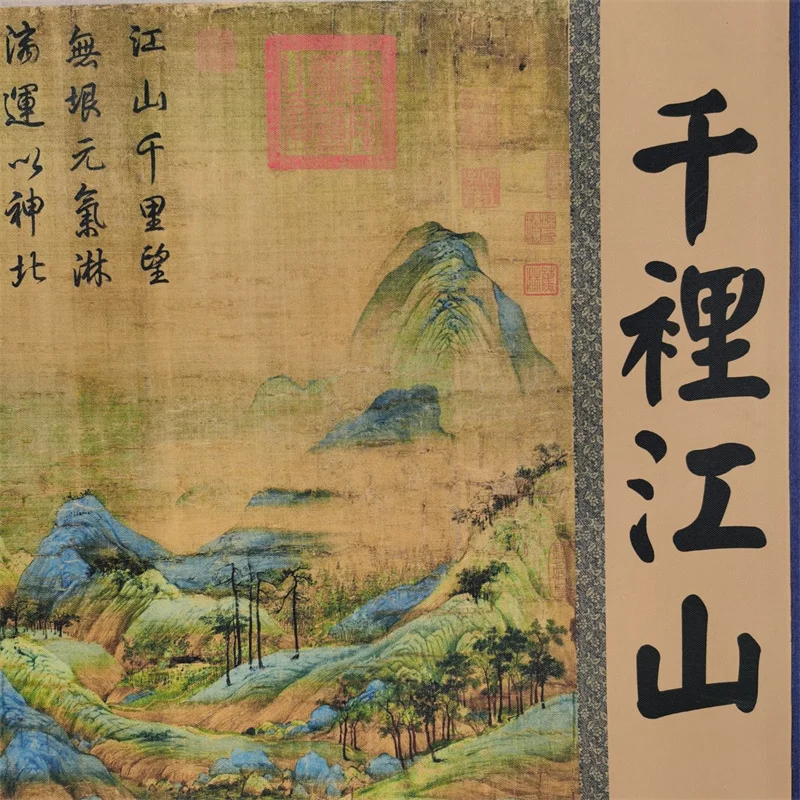 千裡江山
江山千里望
無垠元氣淋
漓運以神北